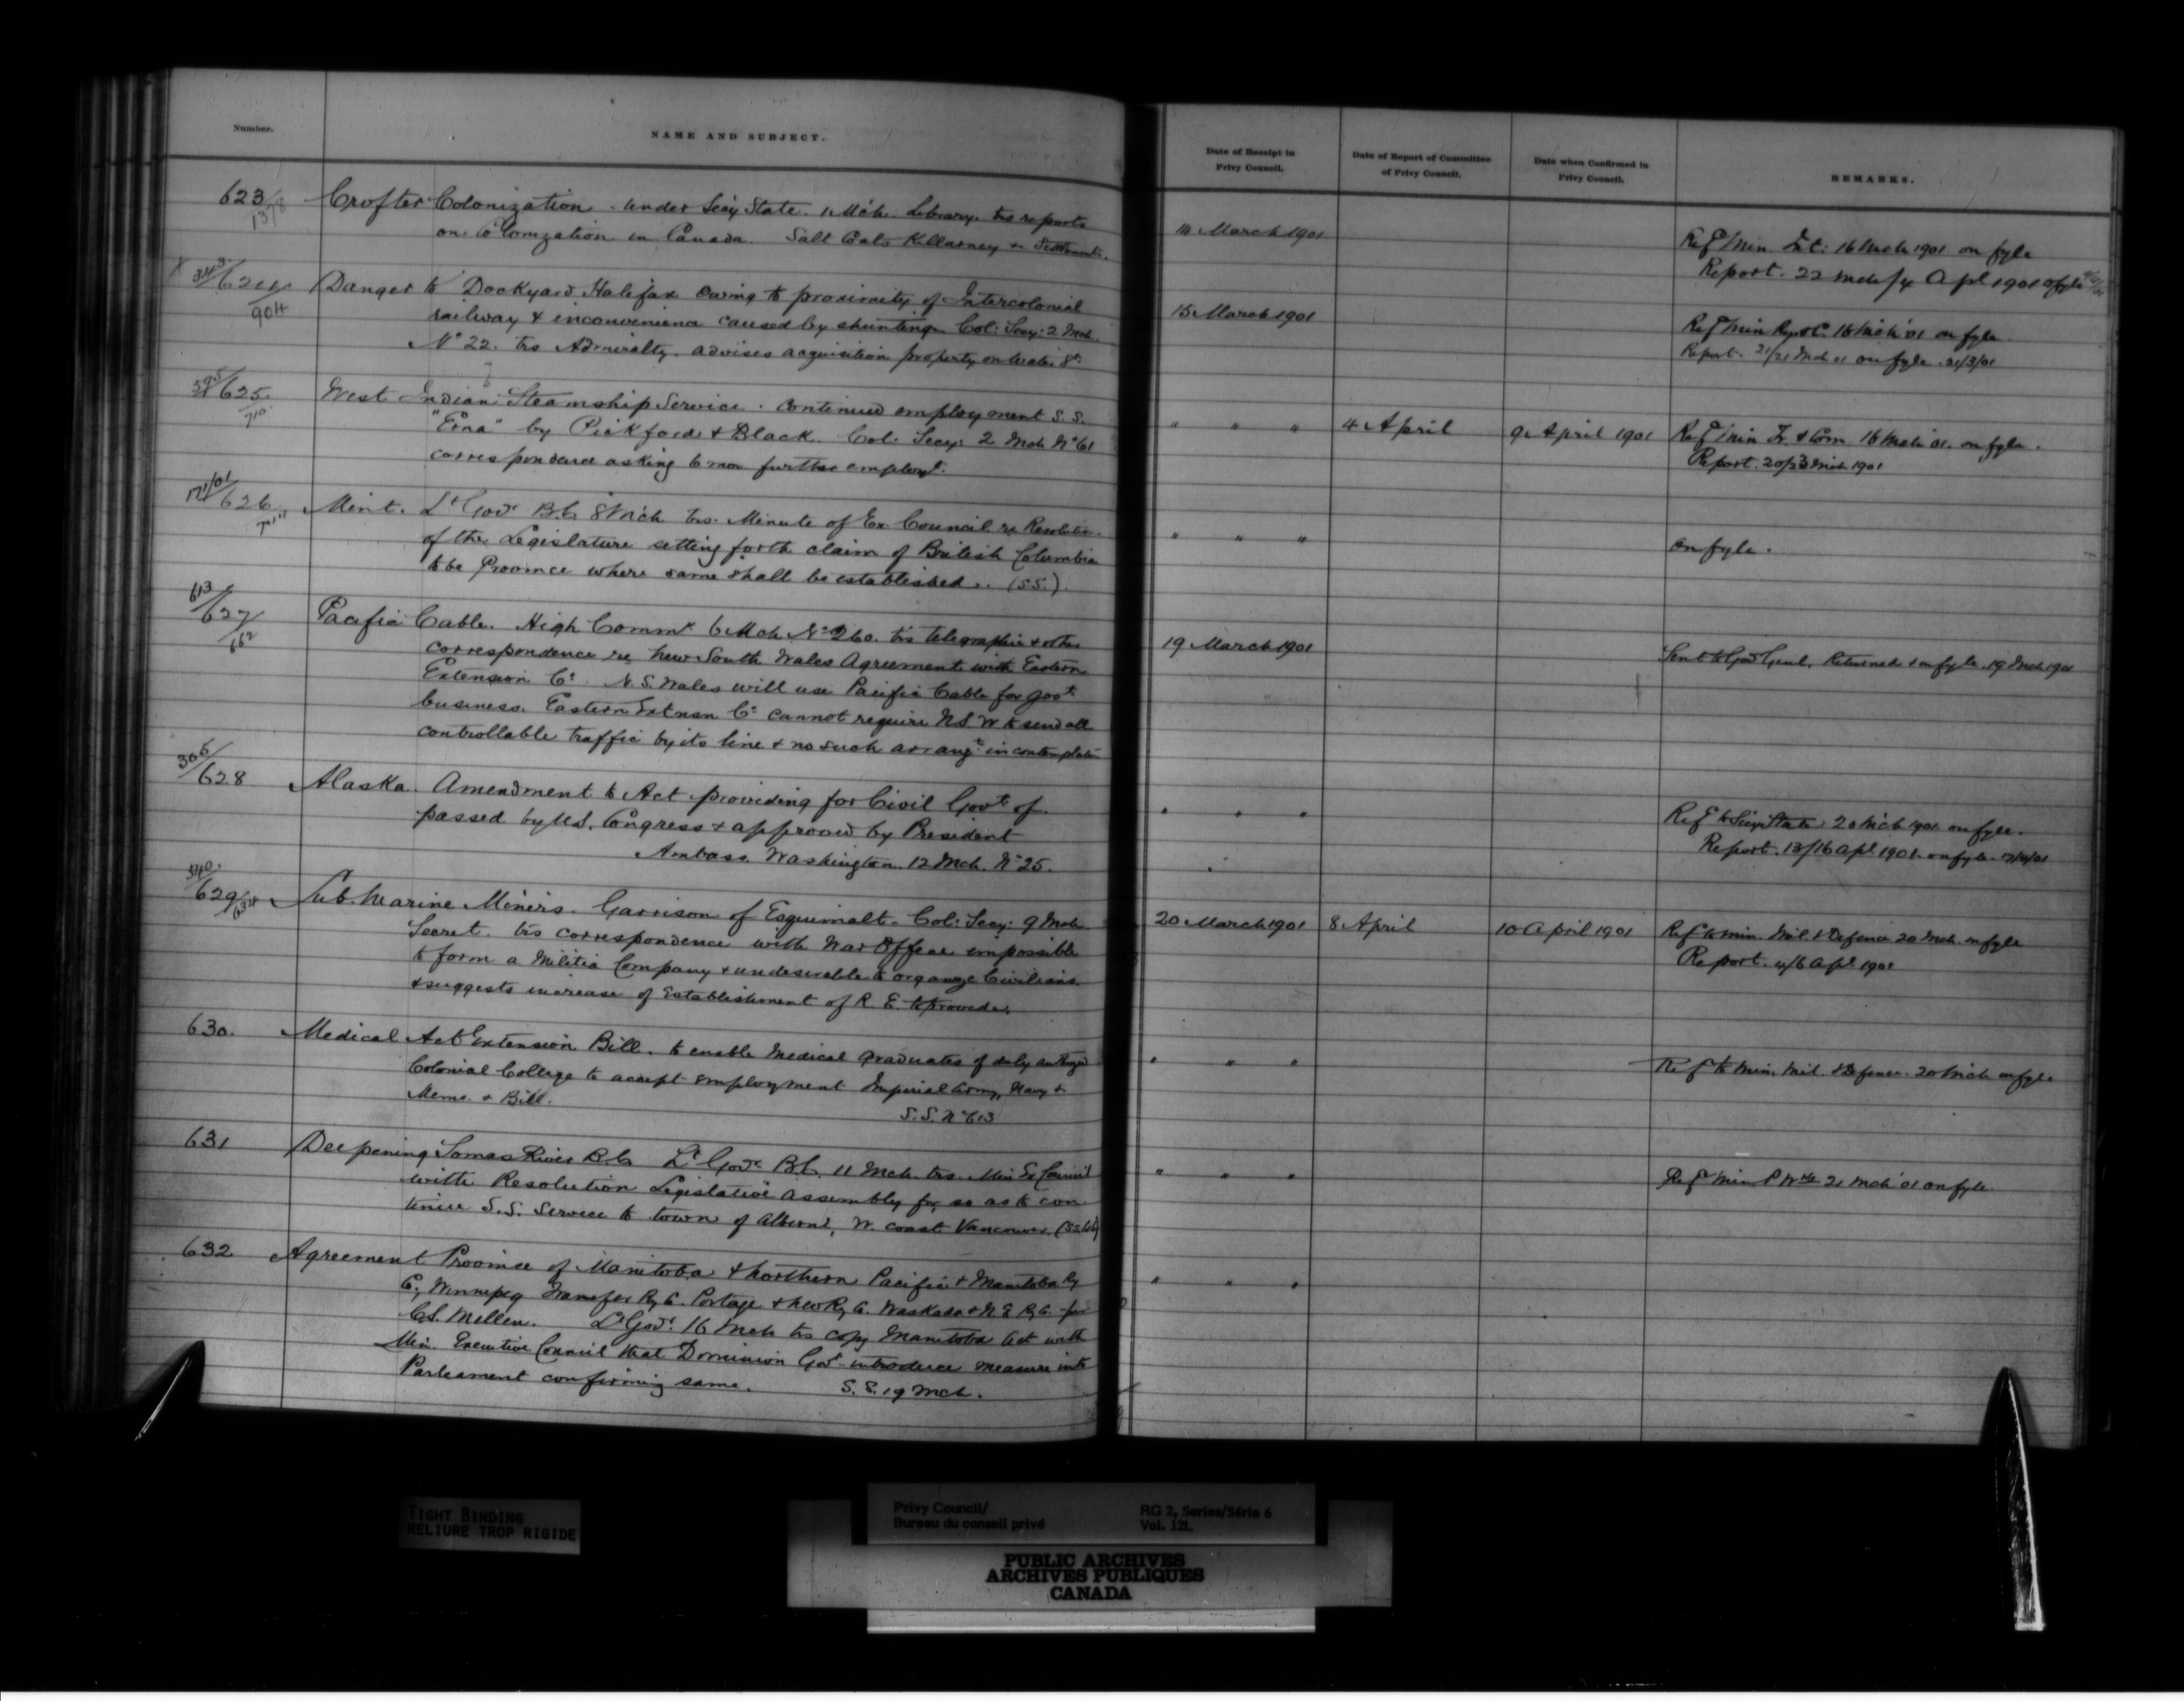 Number.
NAME AND SUBJECT.
Date of Receipt in
Privy Council.
Date of Report of Committee
of Privy Council.
Date when Confirmed in
Privy Council.
REMARKS.
623/1378
Crofter Colonization. Under Secy State. 1 Mch. Library. trs reports
on Colonization in Canada. Salt Coats Killarney
14 March 1901
Ref Min Int: 16 Mch 1901 on fyle
Report. 22 Mch/4 Apl 1901 on fyle
343/624/904
Danger to Dockyard Halifax owing to proximity of Intercolonial
railway & inconvenience caused by shunting. Col: Secy: 2 Mch.
No 22. trs Admiralty. advises acquisition property on Water St.
15 March 1901
Ref Min Ry & C. 16 Mch 01 on fyle
Report. 21/21 Mch 01 on fyle. 21/3/01
595/625/710
West Indian Steamship Service. continued employment S.S.
"Erna" by Pickford & Black. Col: Secy: 2 Mch No 61
correspondence asking further employt.
" " "
4 April
9 April 1901
Ref Min Tr. & Com. 16 Mch 01. on fyle.
Report. 20/23 Mch 1901
171/01/626
Mint. Lt Govr B.C. 8 Mch trs. Minute of Ex. Council re Resolution
of the Legislature setting forth claim of British Columbia
to be Province where same shall be established. (S.S.)
" " "
on fyle.
613/627/662
Pacific Cable. High Commr 6 Mch No 260. trs telegraphic & other
correspondence re New South Wales Agreement with Eastern
Extension Co. N.S. Wales will use Pacific Cable for govt
business. Eastern Extnsn Co cannot require N.S.W. to send all
controllable traffic by its line & no such arrangt in contemplatn
19 March 1901
Sent to Gov Genl. Returned & on fyle 19 Mch 1901
305/628
Alaska. Amendment to Act providing for Civil Govt of.
passed by U.S. Congress & approved by President
Ambass. Washington. 12 Mch. No 25.
" " "
Ref to Secy State 20 Mch 1901. on fyle.
Report. 13/16 Apl 1901. on fyle.
540/629/634
Submarine Miners. Garrison of Esquimalt. Col: Secy: 9 Mch
Secret. trs correspondence with War Office impossible
to form a Militia Company & undesirable to organize Civilians.
& suggests increase of Establishment of R. E. to provide.
20 March 1901
8 April
10 April 1901
Ref to Min. Mil. & Defence 20 Mch. on fyle
Report. 4/6 Apl 1901
630.
Medical Act Extension Bill. to enable Medical graduates of duly
Colonial College to accept employment Imperial Army, Navy &
Memo. & Bill. S.S. No 613
" " "
Ref to Min. Mil. & Defence. 20 Mch on fyle
631
Deepening Somas River B.C. Lt Govr B.C. 11 Mch. trs. Min Ex Council
with Resolution Legislative Assembly for, so as to con-
tinue S.S. Service to town of Alberni, W. coast Vancouver.
" " "
Ref Min P Wks 21 Mch 01 on fyle
632
Agreement Province of Manitoba & Northern Pacific & Manitoba Ry
Co, Winnipeg Transfer Ry Co. Portage & NW Ry Co. Waskada & N.E. Ry Co.
C.S. Mellen. Lt Govr. 16 Mch trs copy Manitoba Act with
Min. Executive Council that Dominion Govt introduce measure into
Parliament confirming same. S.S. 19 Mch.
" " "
TIGHT BINDING
RELIURE TROP RIGIDE
Privy Council/
Bureau du conseil privé
RG 2, Series/Série 6
Vol. 121.
PUBLIC ARCHIVES
ARCHIVES PUBLIQUES
CANADA